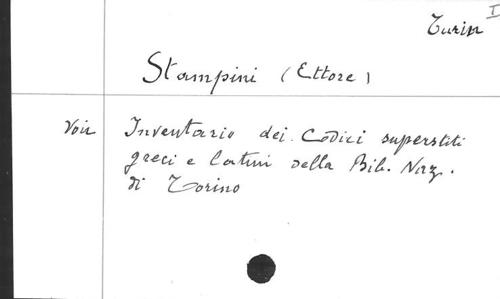 Turin I
Stampini (Ettore)
Voir Inventario dei Codici superstiti
greci e latini della Bib. Naz.
di Torino